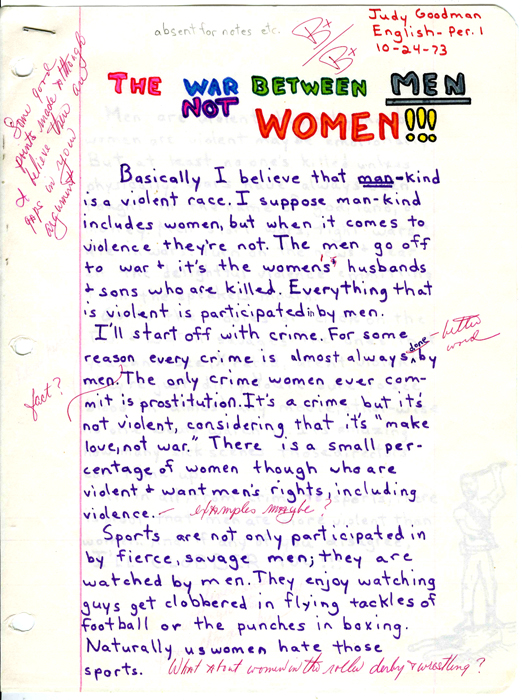 absent for notes etc.
B+
B+
Judy Goodman
English - Per. 1
10-24-73
Some good
points made although
I believe there are
gaps in your
argument
THE WAR BETWEEN MEN
NOT
WOMEN!!!
Basically I believe that man-kind
is a violent race. I suppose man-kind
includes women, but when it comes to
violence they're not. The men go off
to war + it's the women's husbands
+ sons who are killed. Everything that
is violent is participated in by men.
I'll start off with crime. For some
done - better word
reason every crime is almost always by
fact?
men. The only crime women ever com-
mit is prostitution. It's a crime but it's
not violent, considering that it's "make
love, not war." There is a small per-
centage of women though who are
violent + want men's rights, including
violence. - examples maybe?
Sports are not only participated in
by fierce, savage men; they are
watched by men. They enjoy watching
guys get clobbered in flying tackles of
football or the punches in boxing.
Naturally us women hate those
sports. What about women in the roller derby + wrestling?